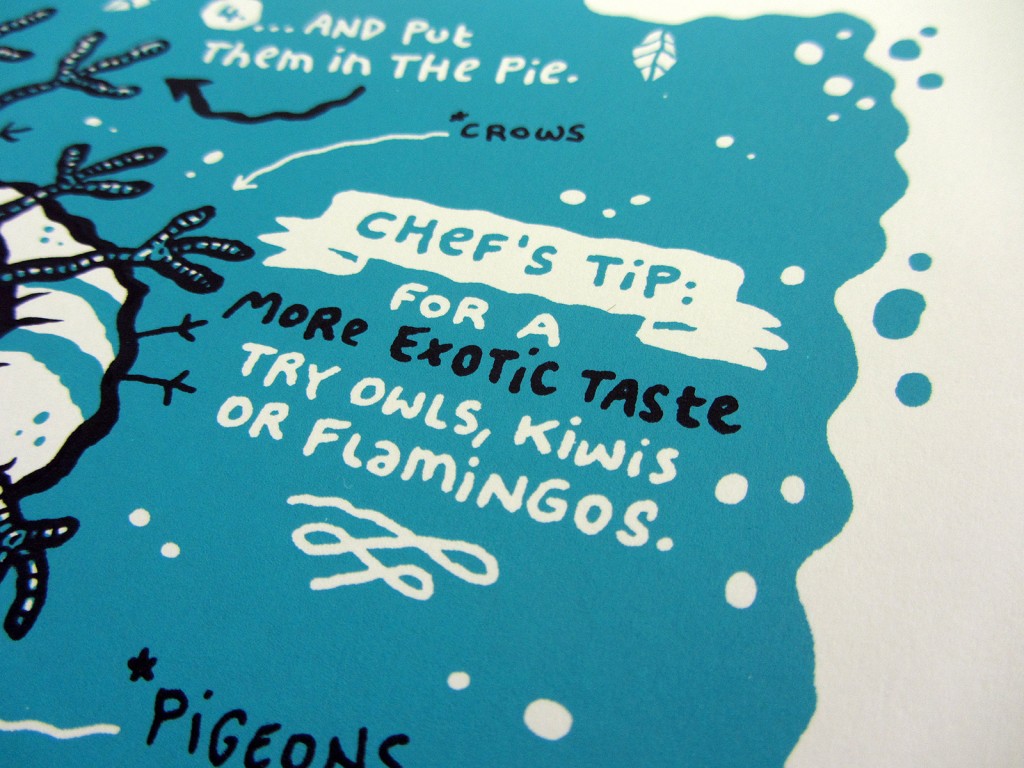 4. ... AND PUT
THEM IN THE PIE.
*CROWS
CHEF'S TIP:
FOR A
MORE EXOTIC TASTE
TRY OWLS, KIWIS
OR FLAMINGOS.
*PIGEONS